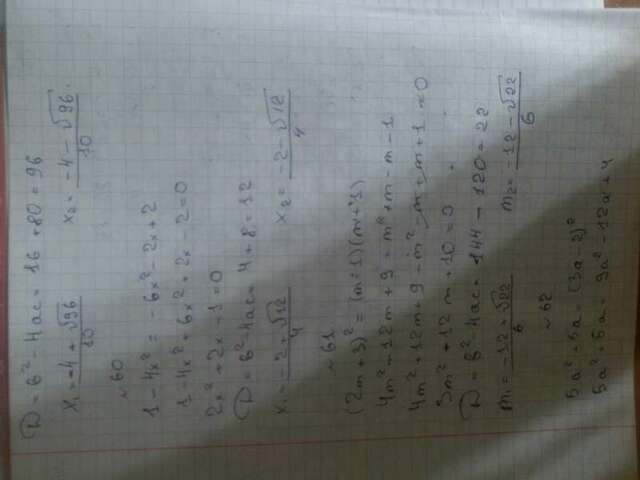 D = b² - 4ac = 16 + 80 = 96
x₁ = (-4 + √96)/10 x₂ = (-4 - √96)/10
~60
1 - 4x² = -6x² - 2x + 2
1 - 4x² + 6x² + 2x - 2 = 0
2x² + 2x - 1 = 0
D = b² - 4ac = 4 + 8 = 12
x₁ = (-2 + √12)/4 x₂ = (-2 - √12)/4
~61
(2m + 3)² = (m - 1)(m + 1)
4m² + 12m + 9 = m² + m - m - 1
4m² + 12m + 9 - m² - m + m + 1 = 0
3m² + 12m + 10 = 0
D = b² - 4ac = 144 - 120 = 22
m₁ = (-12 + √22)/6 m₂ = (-12 - √22)/6
~62
5a² + 5a = (3a - 2)²
5a² + 5a = 9a² - 12a + 4